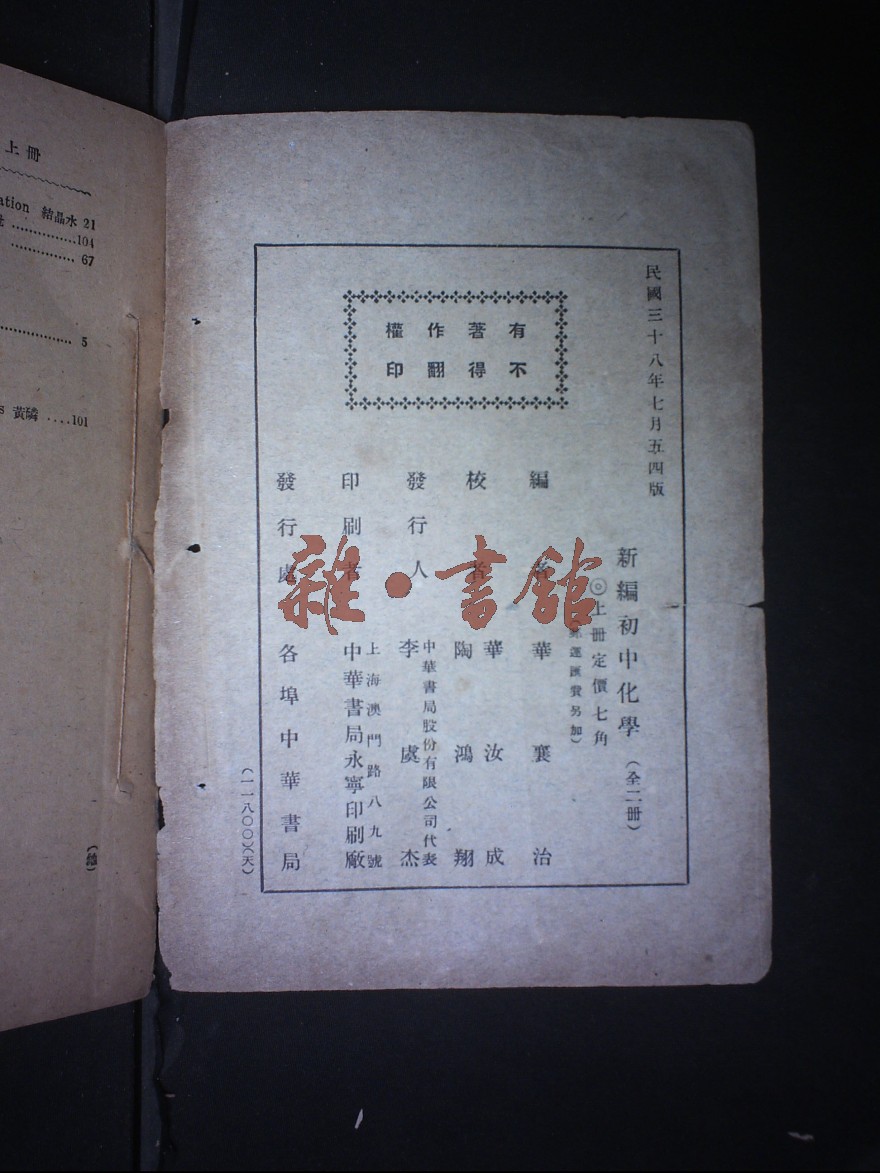 民國三十八年七月五四版
新編初中化學（全二冊）
◎上冊定價七角
運匯費另加）
有著作權
不得翻印
編者 華襄治
校者 華汝成
陶鴻翔
發行人 中華書局股份有限公司代表
李虞杰
印刷者 上海澳門路八九號
中華書局永寧印刷廠
發行處 各埠中華書局
（一一八〇〇）（天）
雜·書館
上冊
ation 結晶水 21
104
67
5
s 黃磷 ....101